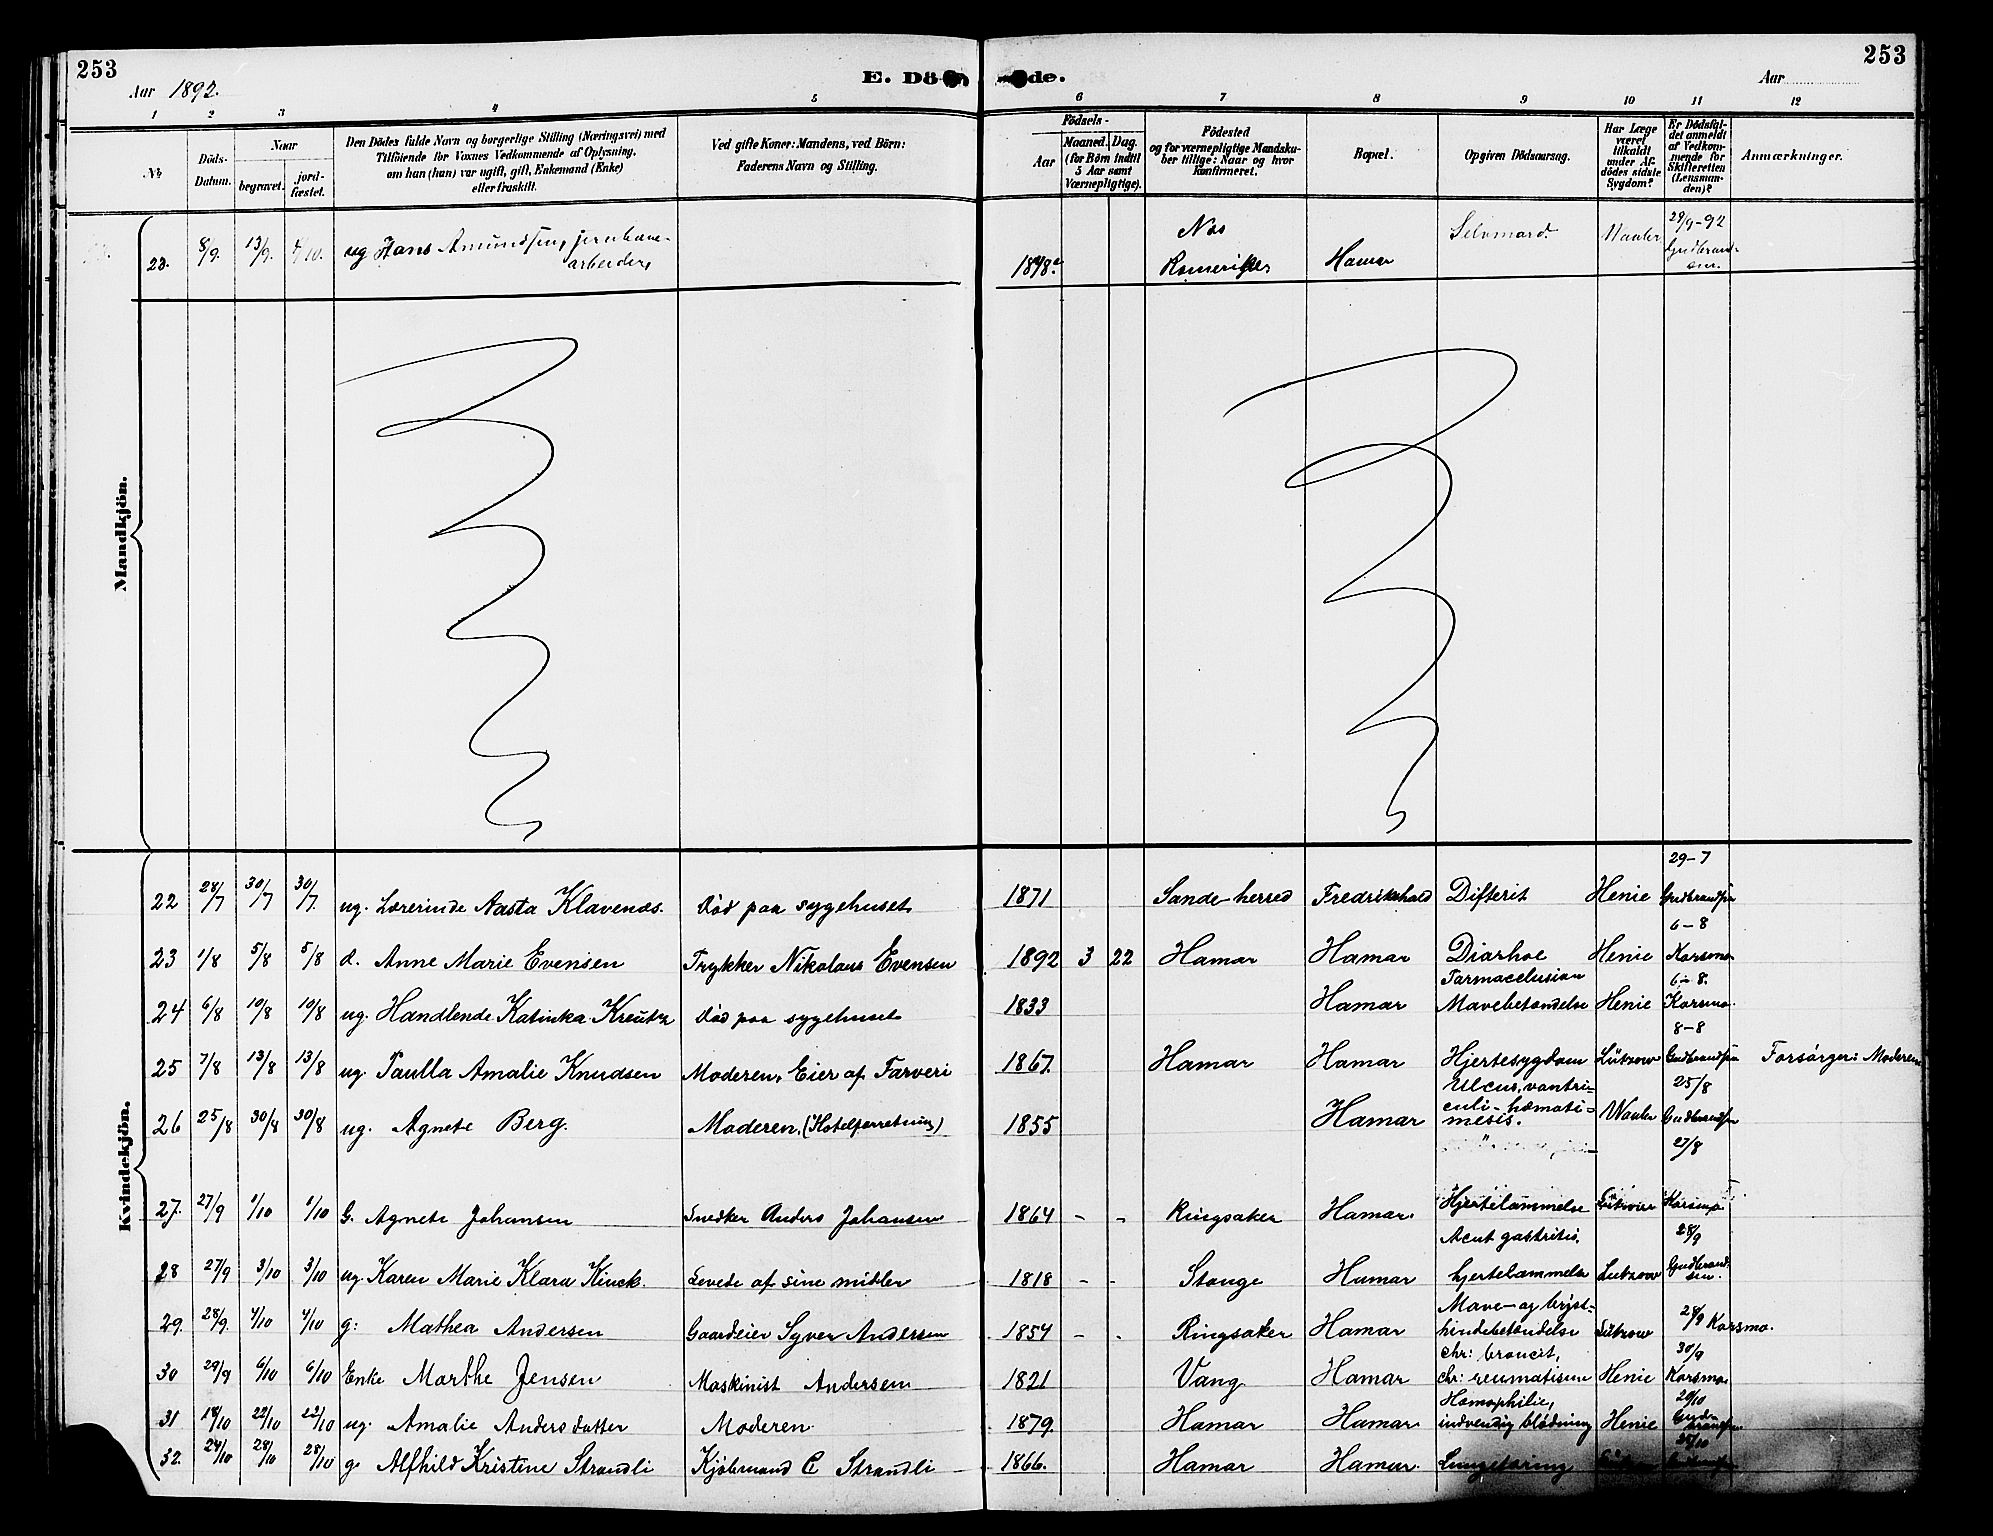 253
Aar 1892.
E. Dö
de.
Aar
253
1 2 3 4 5 6 7 8 9 10 11 12
No
Döds-Datum.
Naar
begravet.
jord-fæstet.
Den Dödes fulde Navn og borgerlige Stilling (Næringsvei) med
Tilföiende for Voxnes Vedkommende af Oplysning,
om han (hun) var ugift, gift, Enkemand (Enke)
eller fraskilt.
Ved gifte Koner: Mandens, ved Börn:
Faderens Navn og Stilling.
Födsels-
Aar
Maaned. Dag.
(for Börn indtil
5 Aar samt
Værnepligtige).
Födested
og for værnepligtige Mandskaber tillige: Naar og hvor
konfirmeret.
Bopæl.
Opgiven Dödsaarsag.
Har Læge
været
tilkaldt
under Afdödes sidste
Sygdom?
Er Dödsfaldet anmeldt
af Vedkommende for
Skifteretten
(Lensmanden)?
Anmærkninger.
Mandkjön.
23. 8/9. 13/9. 4/10. ug Hans Amundsen, jernbanearbeider, 1848. Næs Romerike Hamar Selvmord. Waaler 29/9-92 Gudbrandsen.
Kvindekjön.
22 28/7 30/7 30/7. ug. Lærerinde Aasta Klavenæs. Död paa sygehuset 1871 Sande herred Fredrikshald Difterit Henie 29-7 Gudbrandsen
23 1/8 5/8 5/8 d. Anne Marie Evensen Trykker Nikolaus Evensen 1892 3 22 Hamar Hamar Diarhoe Henie 6-8 Korsmo
24 6/8 10/8 10/8 ug. Handlende Katinka Kreutz Död paa sygehuset 1833 Hamar Tarmocclusion Mavebetændelse Henie 6-8. Korsmo.
25 7/8 13/8 13/8 ug. Paulla Amalie Knudsen Moderen, Eier af Farveri 1867. Hamar Hamar Hjertesygdom Lützow 8-8 Gudbrandsen Forsörger: Moderen
26 25/8 30/8 30/8 ug. Agnete Berg. Moderen, (Hotelforretning) 1855 Hamar Ulcus, ventriculi-hæmatimesis. Waaler 25/8 Gudbrandsen
27. 27/9 1/10 1/10 G. Agnete Johansen Snedker Anders Johansen 1864 - - Ringsaker Hamar. Hjertelammelse Lützow 27/8 Korsmo
28 27/9 3/10 3/10 ug. Karen Marie Klara Kinck. Levede af sine midler 1818 - - Stange Hamar Acut gastritis, hjertelammelse Lützow 28/9 Gudbrandsen.
29. 28/9. 4/10 4/10 g: Mathea Andersen Gaardeier Syver Andersen 1854 - - Ringsaker Hamar Mave- og brysthindebetændelse Lützow 28/9 Korsmo.
30 29/9 6/10 6/10 Enke Marthe Jensen Maskinist Andersen 1821 Vang Hamar chr: broncit, chr: reumatisme Henie 30/9 Korsmo
31 18/10 22/10 22/10 ug. Amalie Andersdatter Moderen 1879. Hamar Hamar Hæmophilie, indvendig blödning Henie 20/10 Gudbrandsen
32. 24/10 28/10 28/10 g. Alfhild Kristine Strandli Kjöbmand C Strandli 1866. Hamar Hamar. Lungetæring 25/10